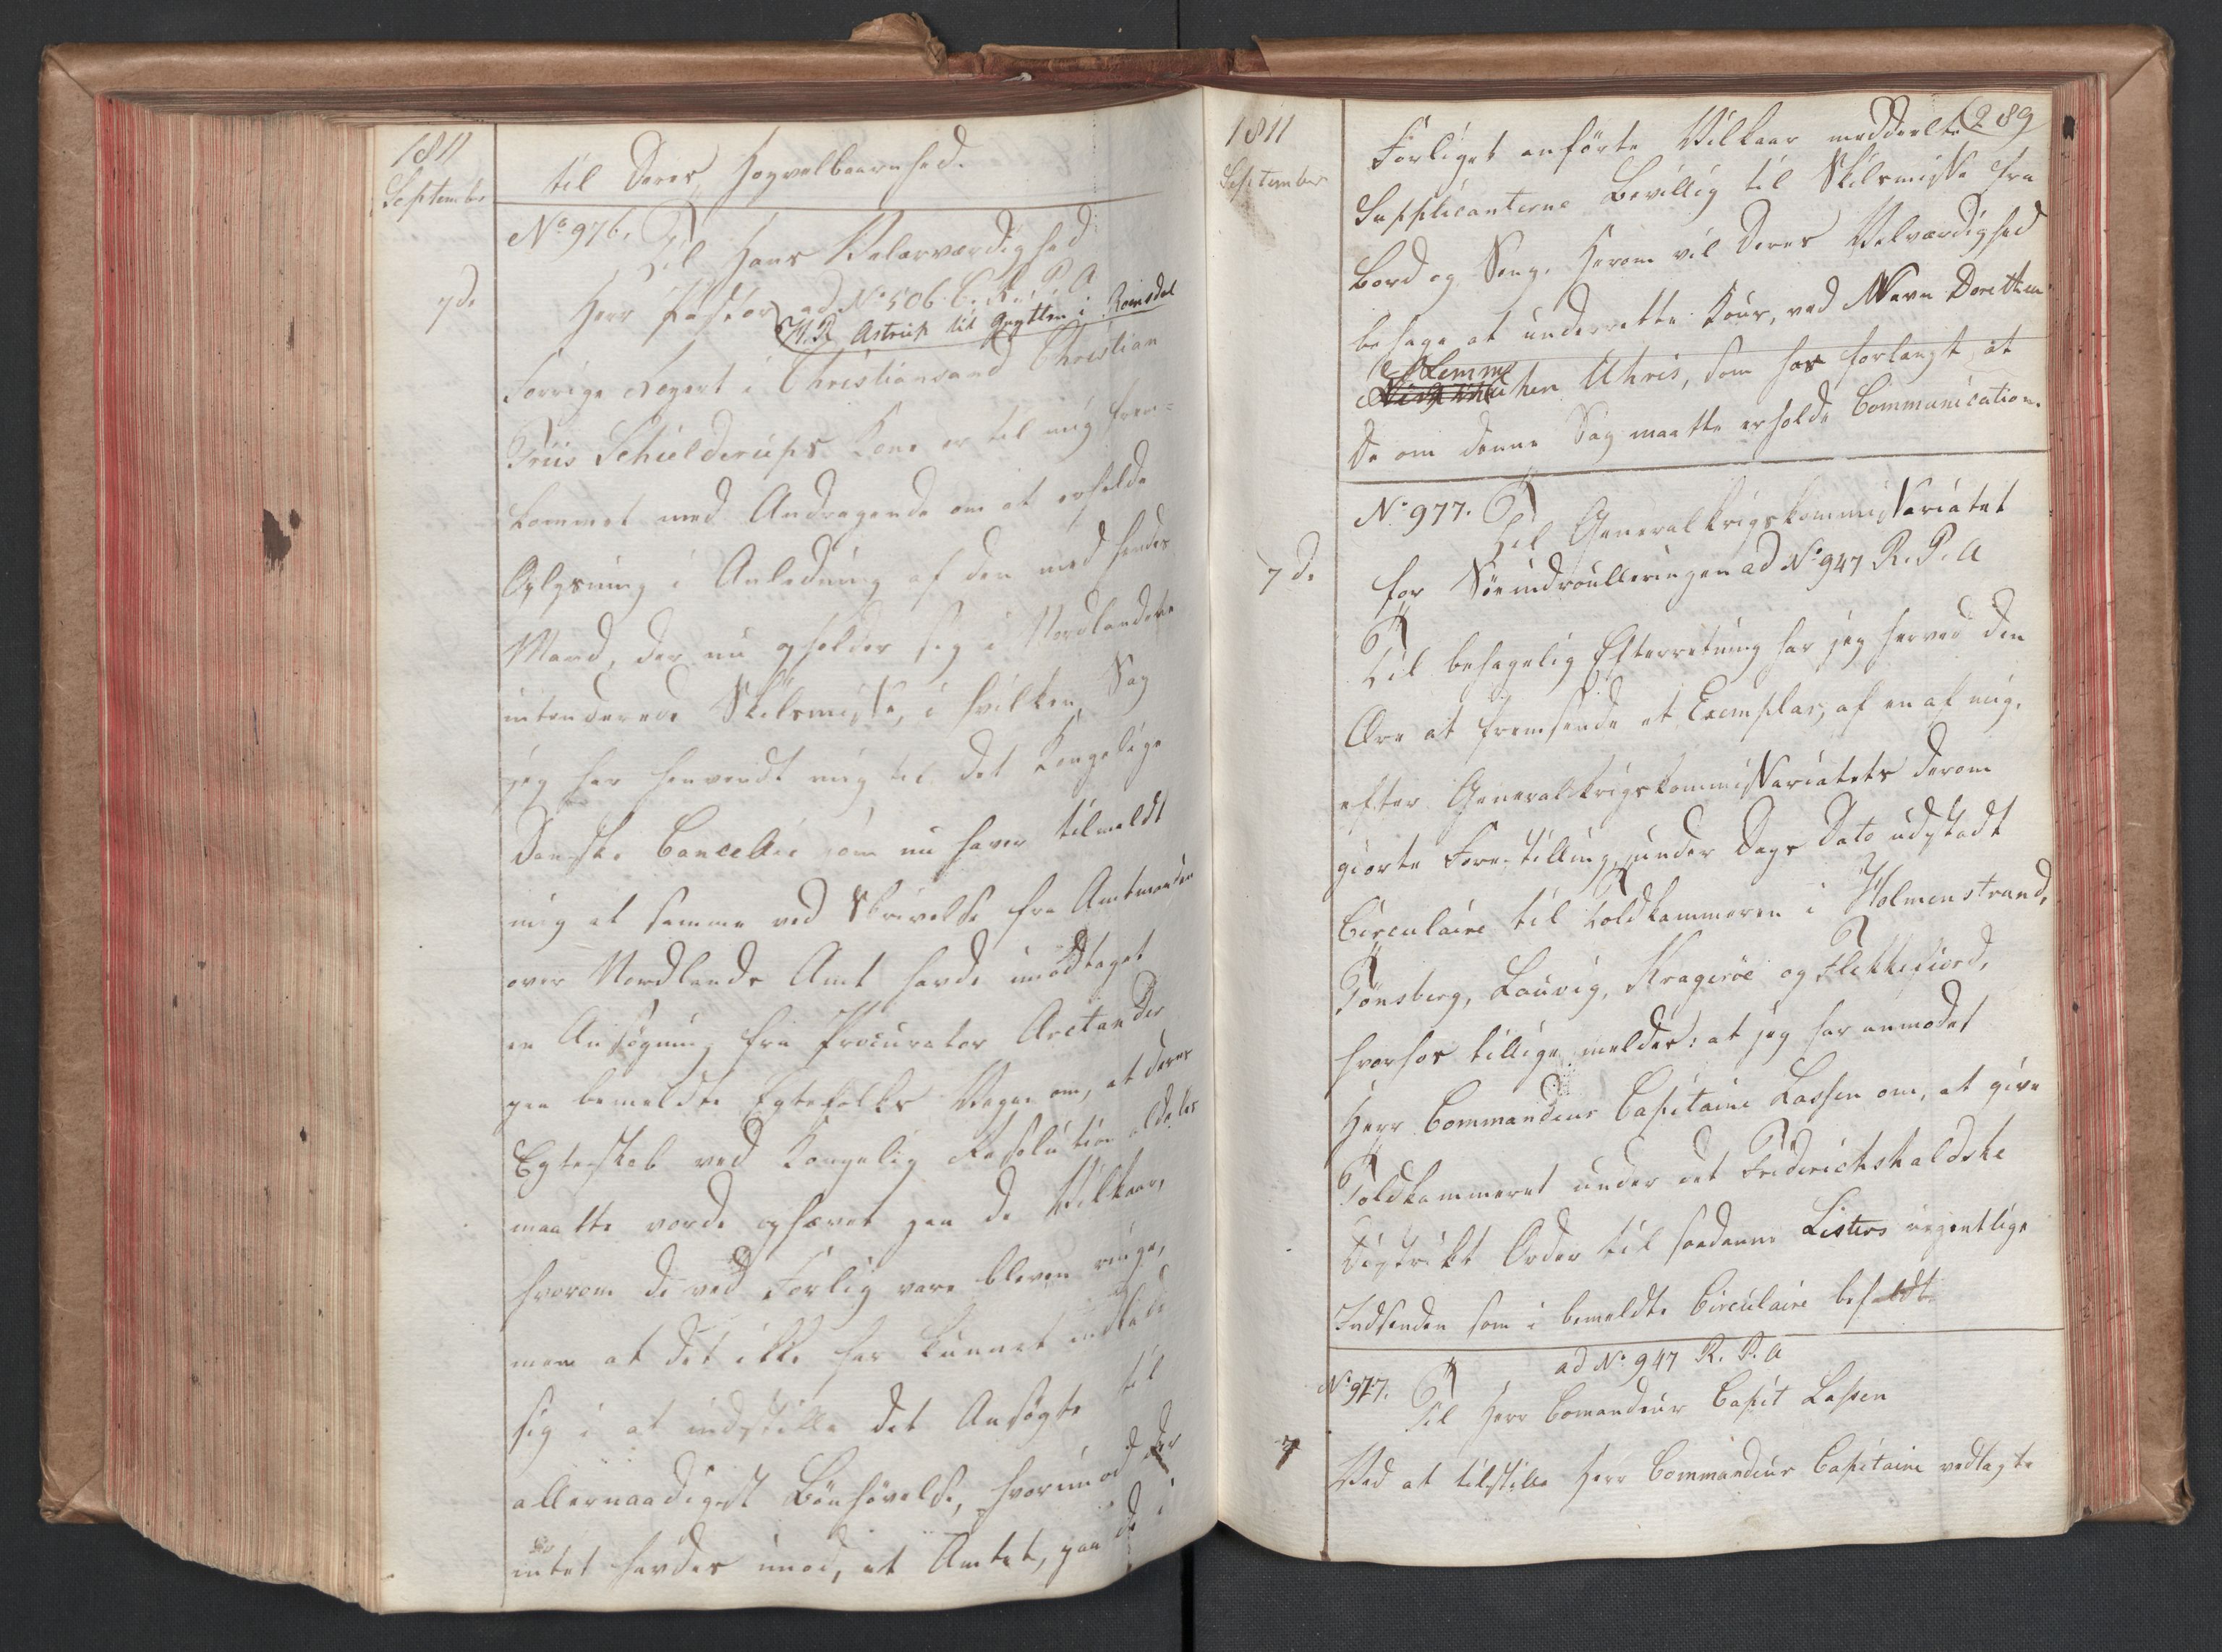 1811
September
til Deres Høyvelbaarenhed.
No 976.
Til Hans Velærværdighed
7de
Herr Pastor ad No 506 C. R. P. A
H. R. Astrup til Gryttin i Romsdal
Forrige Foged i Christiansand Christian
Friis Schielderups Kone er til mig frem=
kommet med Andragende om at erholde
Oplysning i Anledning af den med hendes
Mand, der nu opholder sig i Nordlandene
intenderede Skilsmisse, i hvilken Sag
jeg har henvendt mig til det Kongelige
Danske Cancellie som nu haver tilmeldt
mig at samme ved Skrivelse fra Amtmanden
over Nordlands Amt havde imodtaget
en Ansøgning fra Procurator Arctander
paa bemeldte Egtefolks Vegne om, at deres
Egteskab ved Kongelig Resolution aldeles
maatte vorde ophævet paa de Vilkaar,
hvorom de ved Forlig vare bleven enige,
men at det ikke har kunnet indlade
sig i at indstille det Ansøgte til
allernaadigst Bønhørelse, hvorimod der
intet havdes imod, at Amtet, paa de i
1811
September
289
Forliget anførte Vilkaar meddeelte
Supplicanterne Bevilling til Skilsmisse fra
Bord og Seng. Herom vil Deres Velærværdighed
behage at underrette Konen, ved Navn Dorethea
Lemmichen Uhris, som har forlangt, at
De om denne Sag maatte erholde Communication.
No 977.
Til Generalkrigskommissariatet
7de
for Søeindroulleringen ad No 947 R. P. A
Til behagelig Efterretning har jeg herved den
Ære at fremsende et Exemplar, af en af mig,
efter Generalkrigskommissariatets derom
giorte Forestilling, under Dags Dato udstædt
Circulaire til Toldkammeren i Holmenstrand,
Tønsberg, Laurvig, Kragerøe og Flekkefiord,
hvorhos tillige meldes: at jeg har anmodet
Herr Commandeur Capitaine Lassen om, at give
Toldkammeret under det Friderichshaldske
Districkt Order til saadanne Listers ufortlige
Indsenden som i bemeldte Circulaire befaldt.
ad No 947 R. P. A
No 977.
Til Herr Comandeur Capit Lassen
7
Ved at tilstille Herr Commandeur Capitaine vedlagte